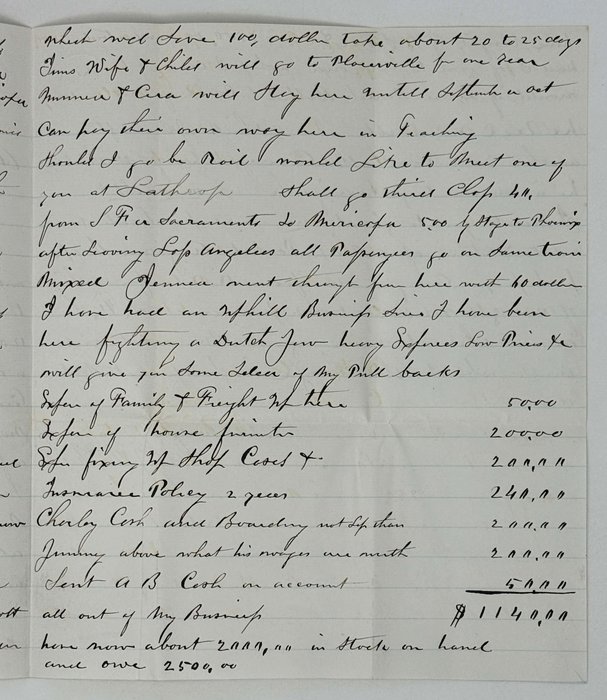 which will save 100, dollar take about 20 to 25 days
Jims Wife & Child will go to Placerville for one Year
Minnea & Cera will Stay here untill September or Oct
Can pay their own way here in Teaching
Should I go be Rail would Like to Meet one of
you at Lathrop Shall go third Class 40.
from S F or Sacramento to Maricopa 5.00 by Stage to Phoenix
after Leaving Los Angelees all Passengers go on Same train
Mixed went through from here with 60 dollar
I have had an Uphill Business Since I have been
here fighting a Dutch Jew heavy Expences Low Prices &c
will give you Some Idea of My Pull backs
Expen of Family & Freight up here 50.00
Expen of house furniter 200.00
Expn fixing up Shop Cases & 200.00
Insurance Policy 2 years 240.00
Charley Cash and Boarding not Less than 200.00
Jimmy above what his wages are worth 200.00
Sent A B Cash on account 50.00
all out of My Business $1140.00
have now about 2000.00 in Stock on hand
and owe 2500.00